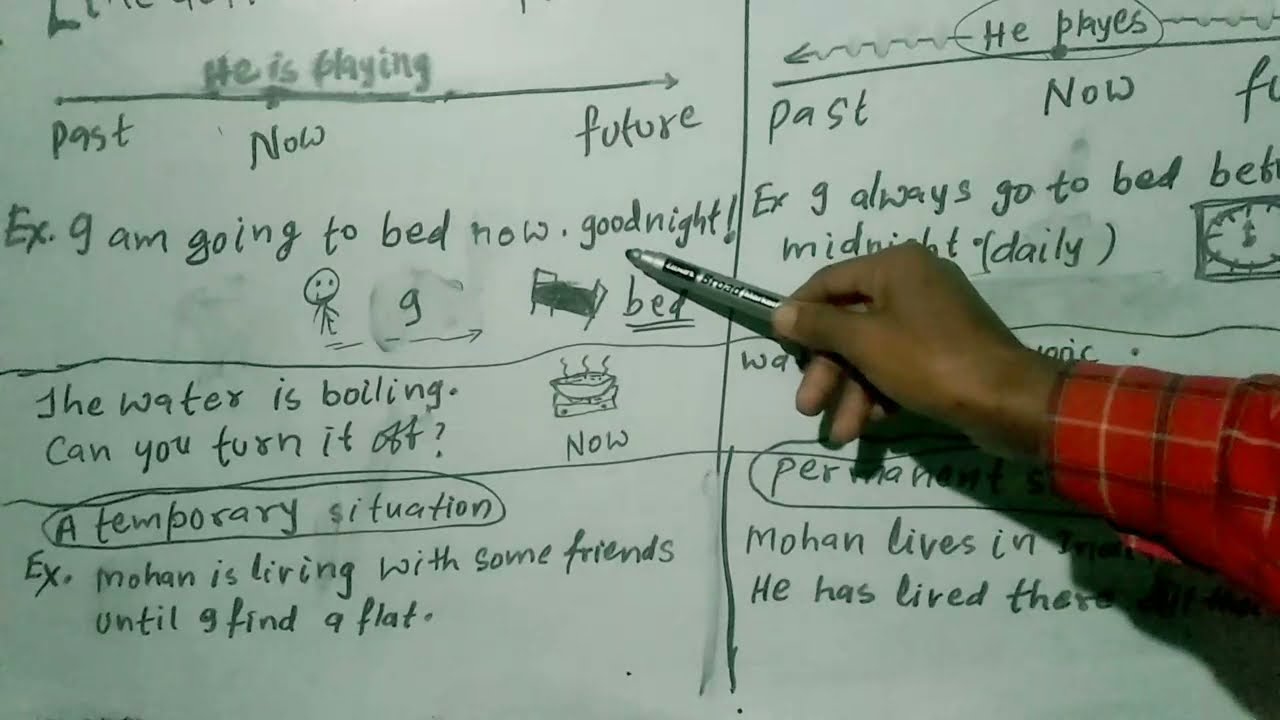 He is playing
past Now future
Ex. I am going to bed now. goodnight!
I bed
The water is boiling.
Can you turn it off?
Now
A temporary situation
Ex. Mohan is living with some friends
until I find a flat.
He playes
past Now
Ex I always go to bed
midnight. (daily)
permanent
Mohan lives in
He has lived there